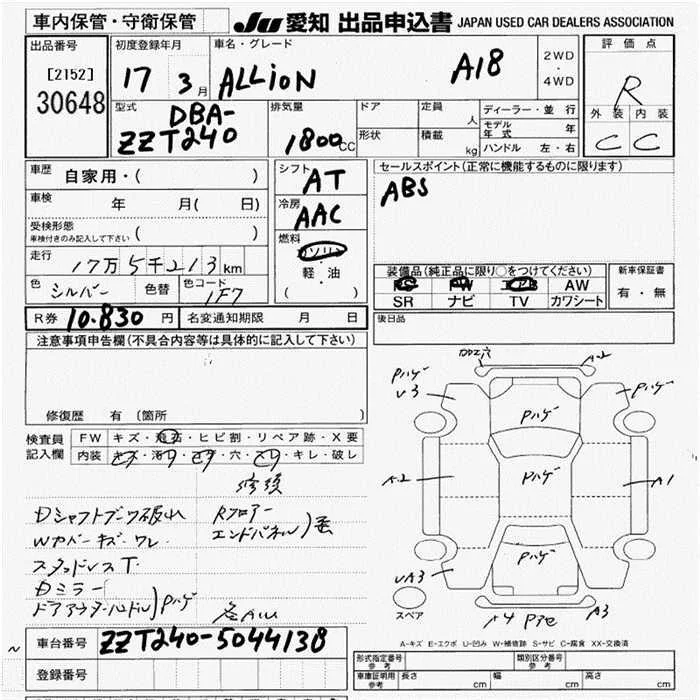 車内保管・守衛保管 JU 愛知 出品申込書 JAPAN USED CAR DEALERS ASSOCIATION
出品番号
[2152]
30648
初度登録年月
17 3 月
車名・グレード
ALLION A18
2WD
・
4WD
評価点
R
外装 内装
C C
型式
DBA-
ZZT240
排気量
1800 CC
ドア
形状
定員 人
積載 kg
ディーラー・並行
モデル年式 年
ハンドル 左・右
車歴 自家用・( )
車検 年 月( 日)
受検形態
車検付きのみ記入して下さい ( )
走行
17万5千213km
色 シルバー 色替 色コード 1F7
R券 10.830 円 名変通知期限 月 日
シフト
AT
冷房
AAC
燃料
ガソリン
・
軽・油
( )
セールスポイント(正常に機能するものに限ります)
ABS
装備品(純正品に限り○をつけてください)
PS PW エアB AW
SR ナビ TV カワシート
新車保証書
有・無
後日品
注意事項申告欄(不具合内容等は具体的に記入して下さい)
修復歴 有 〔箇所
検査員
記入欄
FW キズ・飛石・ヒビ割・リペア跡・X要
内装 キズ・汚レ・コゲ・穴・スレ・キレ・破レ
Dシャフトブーツ破れ
Wカバーキズ・ワレ
スタッドレスT
Dミラー
ドアアウターハンドル)Pハゲ
Rフロアー
エンドパネル)
Pハゲ
U3
A2
Pハゲ
Pハゲ
A2
Pハゲ
A1
Pハゲ
UA3
A3
スペア
A-キズ E-エクボ U-凹み W-補修跡 S-サビ C-腐食 XX-交換済
車台番号 ZZT240-5044138
登録番号
形式指定番号
参考
類別区分番号
参考
車庫証明用
参考
長さ cm 幅 cm 高さ cm